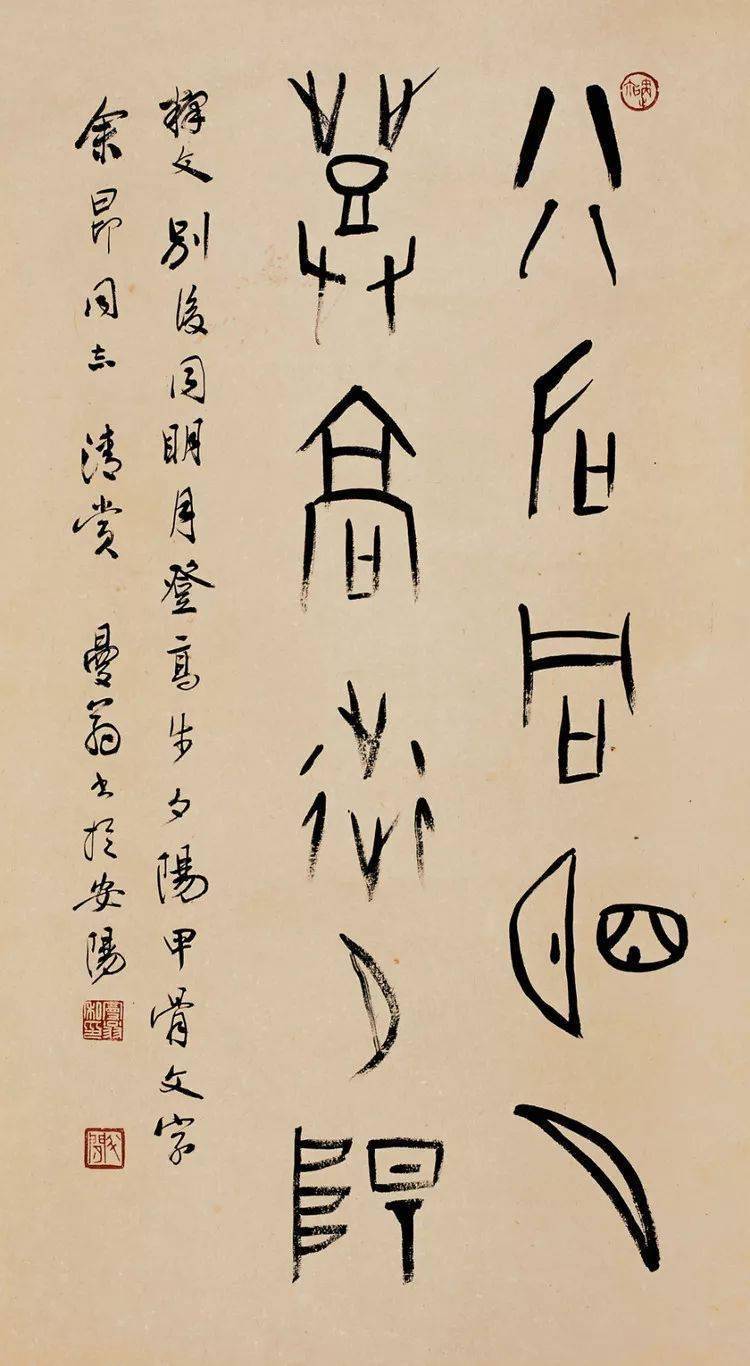 别后同明月
登高步夕陽
釋文别後同明月登高步夕陽甲骨文字
余昂同志清赏 曼翁书於安陽